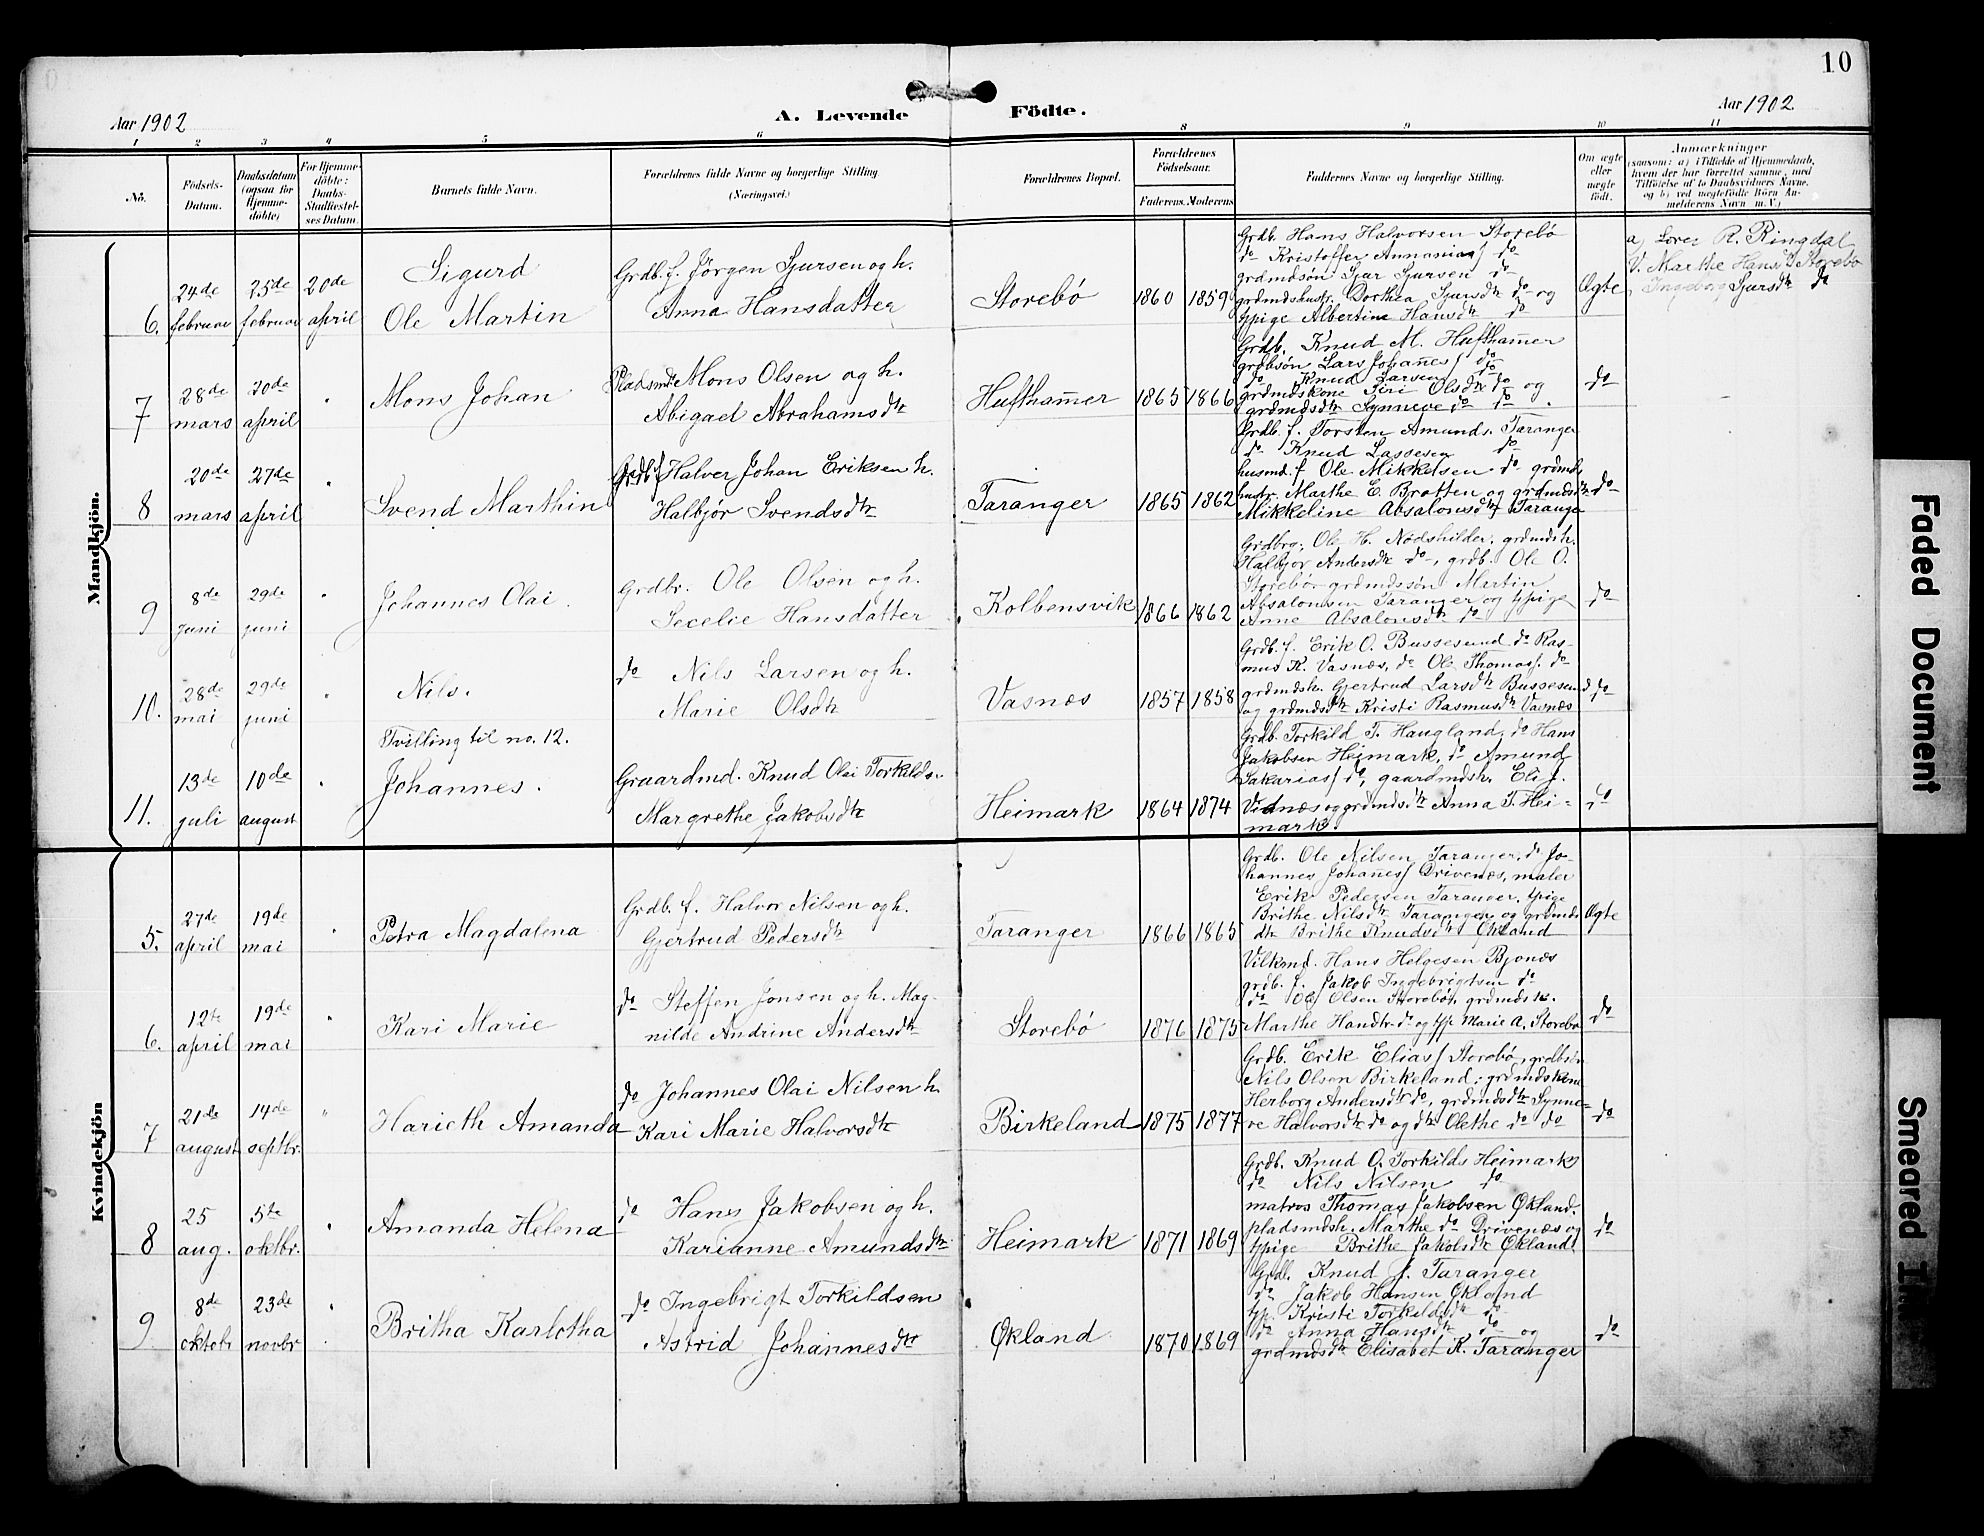 10
Aar 1902
A. Levende Födte.
Aar 1902
1 2 3 4 5 6 8 9 10 11
No.
Födsels-Datum.
Daabsdatum (ogsaa for Hjemme-döbte)
For Hjemme-döbte: Daabs-Stadfæstel-ses Datum.
Barnets fulde Navn.
Forældrenes fulde Navne og borgerlige Stilling.
(Næringsvei.)
Forældrenes Bopæl.
Forældrenes Födselsaar.
Faderens. Moderens.
Faddernes Navne og borgerlige Stilling.
Om ægte eller uægte födt.
Anmærkninger
(saasom: a) i Tilfælde af Hjemmedaab, hvem der har forrettet samme, med Tilföielse af to Daabsvidners Navne, og b) ved uægtefödte Börn An-melderens Navn m. V.)
Mandkjön.
6. 24de februar 25de februar 20de april
Sigurd
Ole Martin
Grdb. f. Jörgen Sjursen og h.
Anna Hansdatter
Storebö 1860 1859
Grdb. Hans Halvorsen Storebö
do Kristoffer Annanias do
grdmdsön Sjur Sjursen do
grdmdshustr. Dorthea Sjursdtr do og
tjpige Albertine Hansdtr do
Ægte
a, Lærer R. Ringdal
V. Marthe Hans Storebö
Ingeborg Sjursdtr do
7 28de mars 20de april "
Mons Johan
Pladsmd. Mons Olsen og h.
Abigael Abrahamsdtr
Hufthammer 1865 1866
Grdb. Knud M. Hufthammer
grdbsön Lars Johannes do
do Knud Larsen do
grdmdskone Siri Olsdtr do og
grdmdsdtr Synneve do do.
do
8 20de mars 27de april "
Svend Marthin
Grdb f Halver Johan Eriksen h.
Halbjör Svendsdtr
Taranger 1865 1862
Grdb. f. Torsten Amunds. Taranger
do Knud Lassesen do
husmd. f Ole Mikkelsen do grdmds
hustr. Marthe E. Bratten og grdmdsdtr
Mikkeline Absalonsdtr Taranger
do
9 8de juni 29de juni "
Johannes Olai.
Grdbr. Ole Olsen og h.
Secelie Hansdatter
Kolbensvik 1866 1862
Grdbrg. Ole H. Nödshilder, grdmdsh.
Halbjor Andersdtr do, grdb. Ole O.
Storebö grdmdssön Martin
Absalonsen Taranger og tjpige
Anne Absalonsdtr do
do
10. 28de mai 29de juni "
Nils.
do Nils Larsen og h.
Marie Olsdtr
Vasnæs 1857 1858
Grdb. f. Erik O. Bussesund do Ras-
mus K. Vasnæs, do Ole Thomas. do
grdmdsh. Gjertrud Larsdtr Bussesund
og grdmdsdtr Kristi Rasmusdtr Vasnæs
do
11. 13de juli 10de august "
Tvilling til no. 12.
Johannes.
Graardmd. Knud Olai Torkilds.
Margrethe Jakobsdtr
Heimark 1864 1874
Grdb. Torkild T. Haugland, do Hans
Jakobsen Heimark, do Amund
Sakarias do, gaardmdsh. Eli J.
Vidnæs og grdmdsdtr Anna T. Hei-
mark.
do
Kvindekjön
5. 27de april 19de mai "
Petra Magdalena
Grdb. f. Halvor Nilsen og h.
Gjertrud Pedersdtr
Taranger 1866 1865
Grdb. Ole Nilsen Taranger, do Jo-
hannes Johannes Drivenæs, maler
Erik Pedersen Taranger, tpige
Brithe Nilsdtr Taranger og grdmds
dtr Brithe Knudsdtr Økland
Ægte
6. 12te april 19de mai "
Kari Marie
do Steffen Jonsen og h. Mag-
nilde Andrine Andersdtr
Storebö 1876 1875
Vilkmd. Hans Helgesen Bjonæs
grdb. f. Jakob Ingebrigtsen do
do Ole Olsen Storebö, grdmdsk.
Marthe Handtr do og tjp. Marie A. Storebö
do
7 21de august 14de septbr. "
Harieth Amanda
do Johannes Olai Nilsen h.
Kari Marie Halvorsdtr
Birkeland 1875 1877
Grdb. Erik Elias Storebö, grdbsön
Nils Olsen Birkeland, grdmdskone
Herborg Andersdtr do, grdmdsdtr Synne-
ve Halvorsdtr do og dtr Olethe do do
do
8 25 aug. 5te oktbr. "
Amanda Helena
do Hans Jakobsen og h.
Karianne Amundsdtr
Heimark 1871 1869
Grdb. Knud O. Torkilds Heimark
do Nils Nilsen do
matros Thomas Jakobsen Økland.
pladsmdsh. Marthe do Drivenæs og
tjpige Brithe Jakobsdtr Økland
do
9. 8de oktobr 23de novbr "
Britha Karlotha
do Ingebrigt Torkildsen
Astrid Johannesdtr
Økland 1870 1869
Grdb. Knud J. Taranger
do Jakob Hansen Økland
tjp. Kristi Torkildsdtr do
do Anna Hansdtr do og
grdmdsdtr Elisabet K. Taranger
do
Faded Document
Smeared